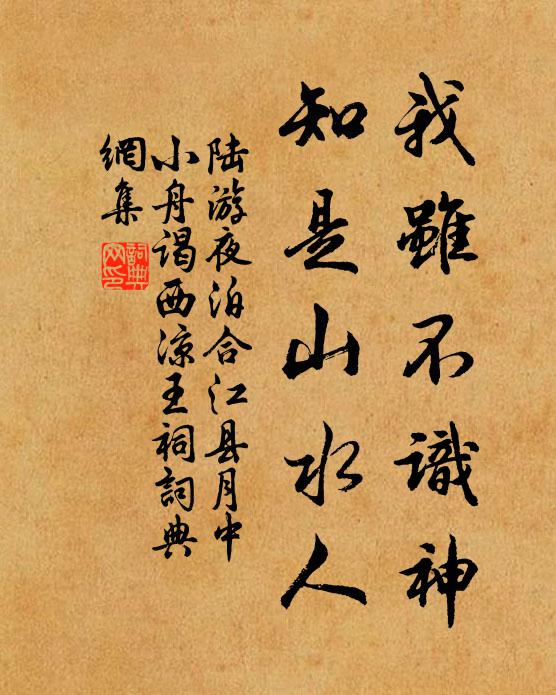 我雖不識神
知是山水人
陆游夜泊合江县月中
小舟谒西凉王祠詞典
網集
詞典
网印